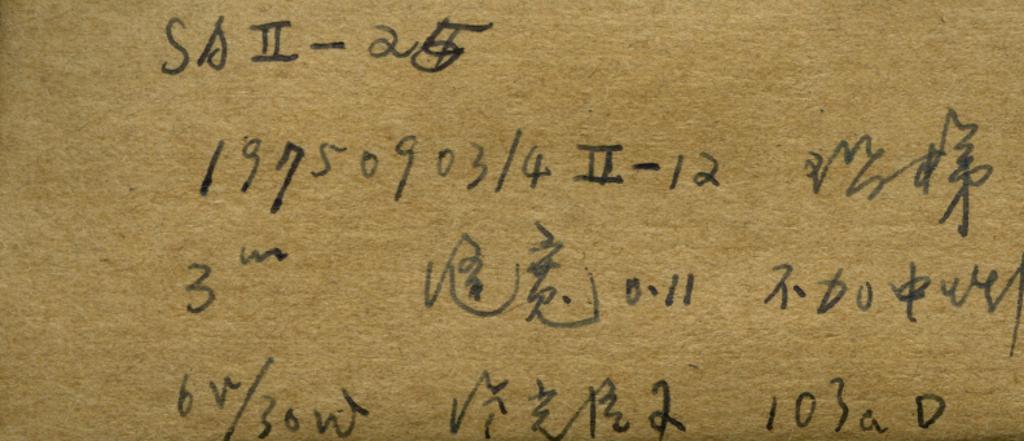 SA II-25
19750903/4 II-12 阶梯
3ᵐ 缝宽 0.11 不加中
6V/30W 103aD